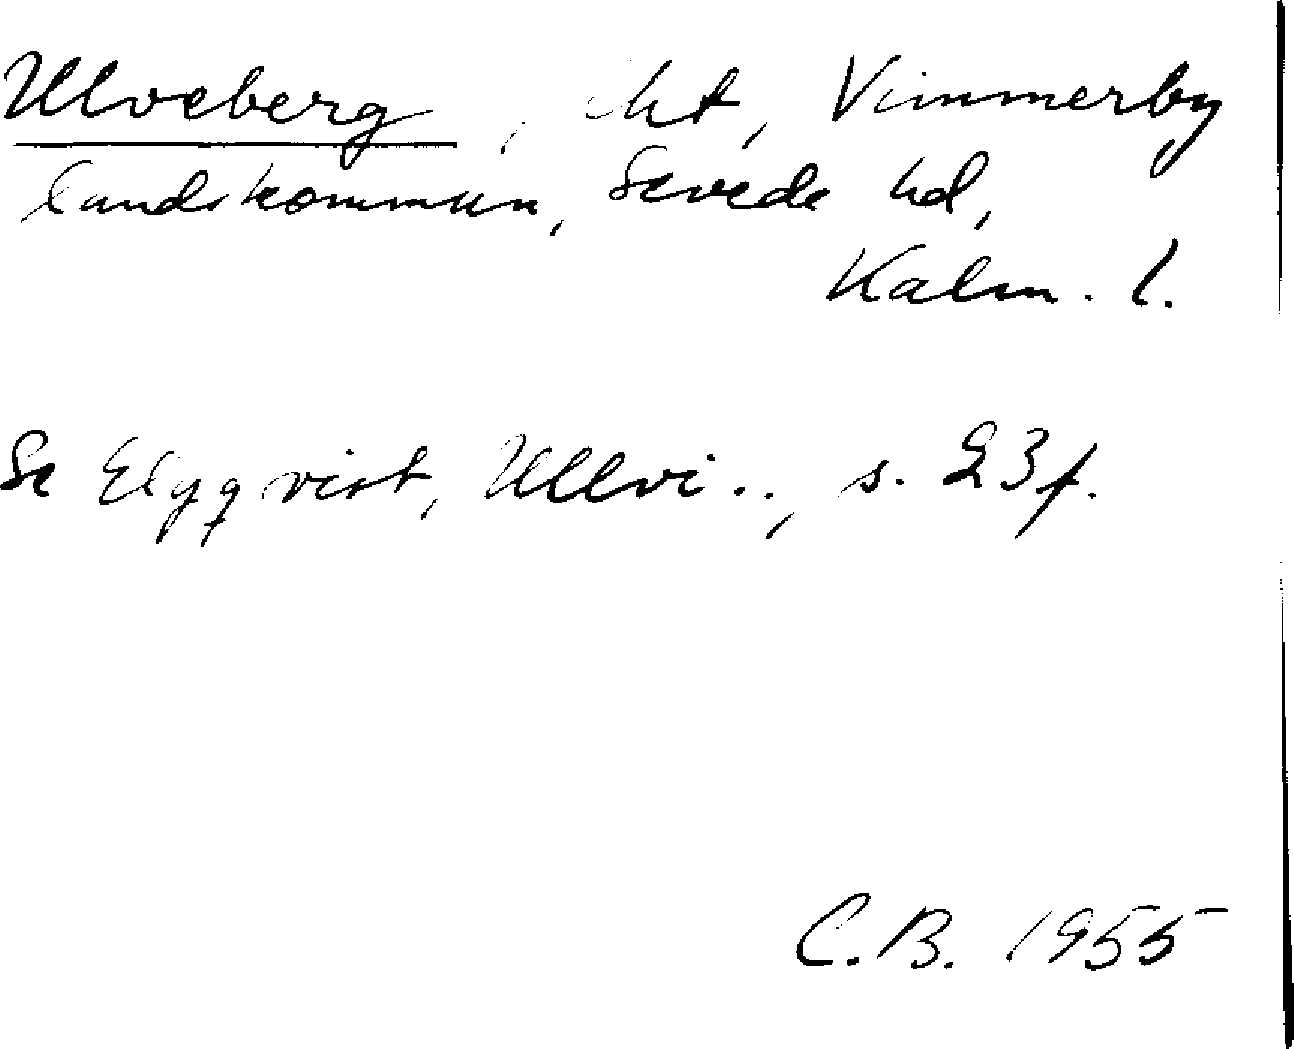 Ulveberg, Vimmerby
landskommun, Sevede hd,
Kalm. l.
Se Elgqvist, Ullvi.., s. 23 f.
C.B. 1955